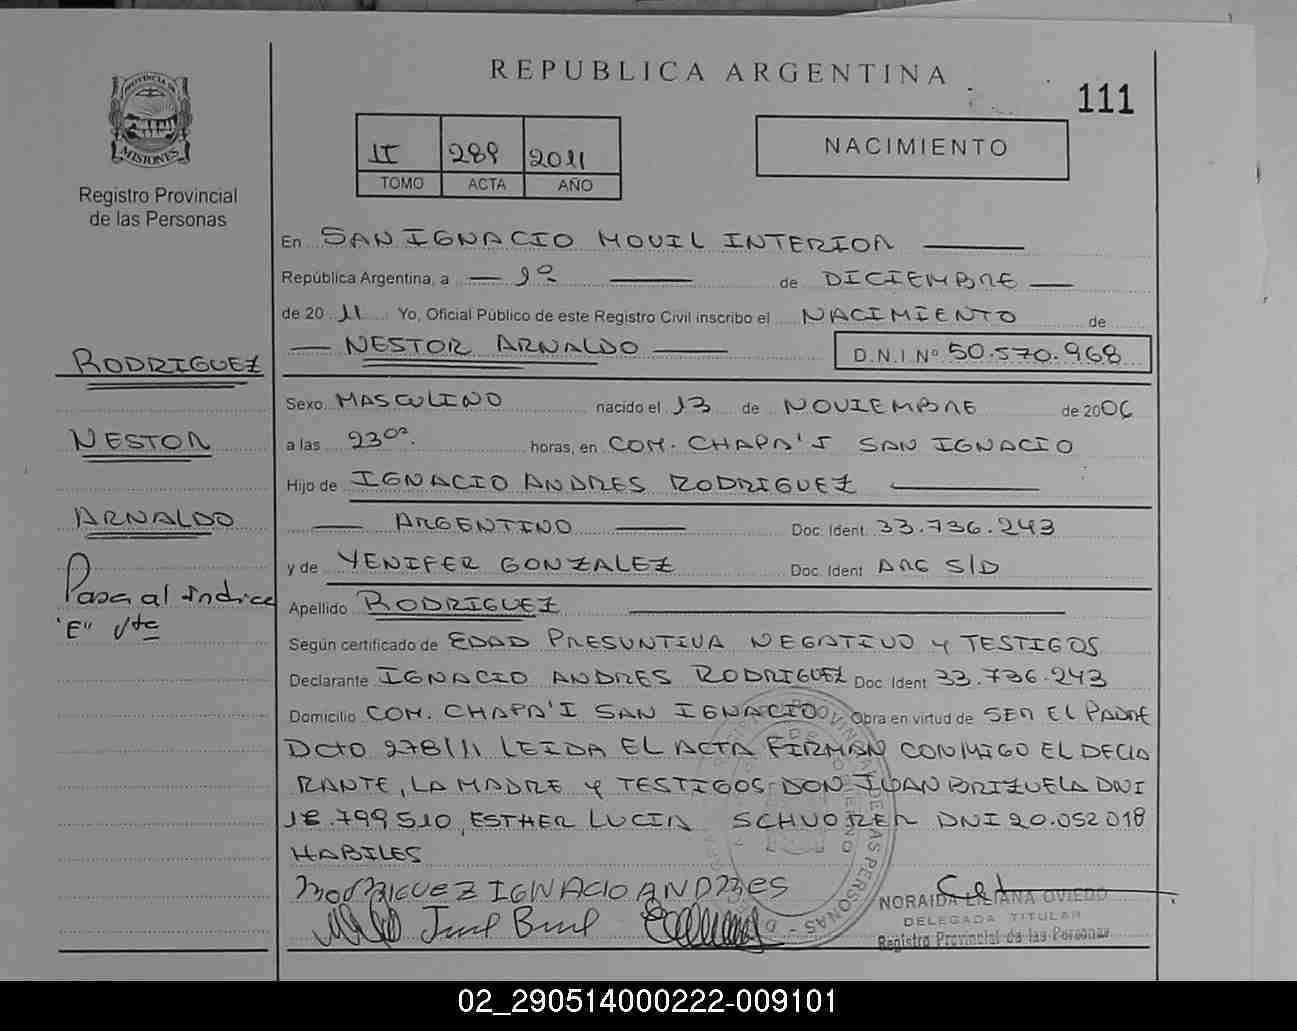 REPUBLICA ARGENTINA
111
PROVINCIA DE
MISIONES
Registro Provincial
de las Personas
II 289 2011
TOMO ACTA AÑO
NACIMIENTO
En SAN IGNACIO MOVIL INTERIOR
República Argentina, a 1º de DICIEMBRE
de 2011 Yo, Oficial Público de este Registro Civil inscribo el NACIMIENTO de
NESTOR ARNALDO D.N.I Nº 50.570.968
RODRIGUEZ
NESTOR
ARNALDO
Pasa al Indice
"E" Vte
Sexo MASCULINO nacido el 13 de NOVIEMBRE de 2006
a las 23 horas, en COM. CHAPA'I SAN IGNACIO
Hijo de IGNACIO ANDRES RODRIGUEZ
ARGENTINO Doc. Ident. 33.736.243
y de YENIFER GONZALEZ Doc. Ident ARG S/D
Apellido RODRIGUEZ
Según certificado de EDAD PRESUNTIVA NEGATIVO Y TESTIGOS
Declarante IGNACIO ANDRES RODRIGUEZ Doc. Ident 33.736.243
Domicilio COM. CHAPA'I SAN IGNACIO Obra en virtud de SER EL PADRE
DCTO 278/11 LEIDA EL ACTA FIRMAN CONMIGO EL DECLA
RANTE, LA MADRE Y TESTIGOS DON JUAN BRIZUELA DNI
18.799510, ESTHER LUCIA SCHVORER DNI 20.052018
HABILES
RODRIGUEZ IGNACIO ANDRES
NORAIDA LILIANA OVIEDO
DELEGADA TITULAR
Registro Provincial de las Personas
02_290514000222-009101